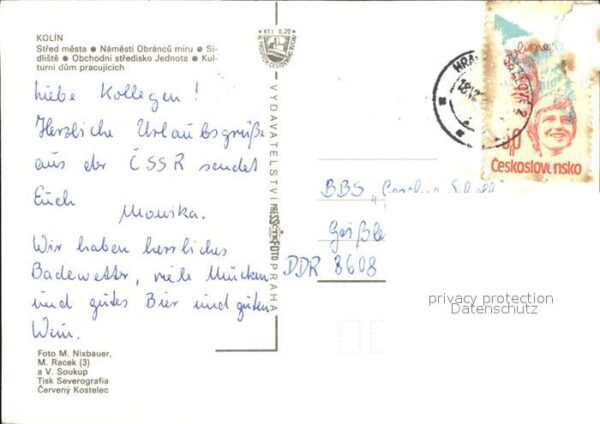 KOLÍN
Střed města ● Náměstí Obránců míru ● Sí-
dliště ● Obchodní středisko Jednota ● Kul-
turní dům pracujících
liebe Kollegen!
Herzliche Urlaubsgrüße
aus der ČSSR sendet
Euch
Monika.
Wir haben herrliches
Badewetter, viele Mücken
und gutes Bier und guten
Wein.
Foto M. Nixbauer,
M. Racek (3)
a V. Soukup
Tisk Severografia
Červený Kostelec
Kčs 0,20
VYDAVATELSTVÍ PRESSFOTO PRAHA
HRA
2
Československo
BBS
DDR 8608
privacy protection
Datenschutz